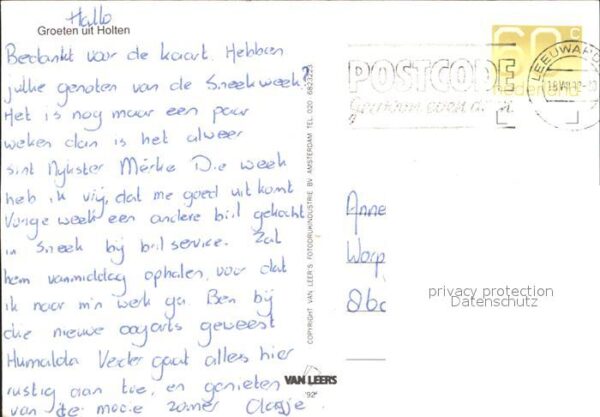 Hallo
Groeten uit Holten
Bedankt voor de kaart. Hebben
jullie genoten van de Sneekweek?
Het is nog maar een paar
weken dan is het alweer
sint Nijkster Mèrke Die week
heb ik vrij, dat me goed uit komt
Vorige week een andere bril gekocht
in Sneek bij bril service. Zal
hem vanmiddag ophalen, voor dat
ik naar m'n werk ga. Ben bij
die nieuwe oogarts geweest
Humalda Verder gaat alles hier
rustig aan toe, en genieten
van de mooie zomer Claasje
COPYRIGHT VAN LEER'S FOTODRUKINDUSTRIE BV AMSTERDAM TEL. 020
VAN LEERS
'92
60 c
nederland
POSTCODE
Gewoon even
LEEUWARD
Anne
Warp
privacy protection
Datenschutz